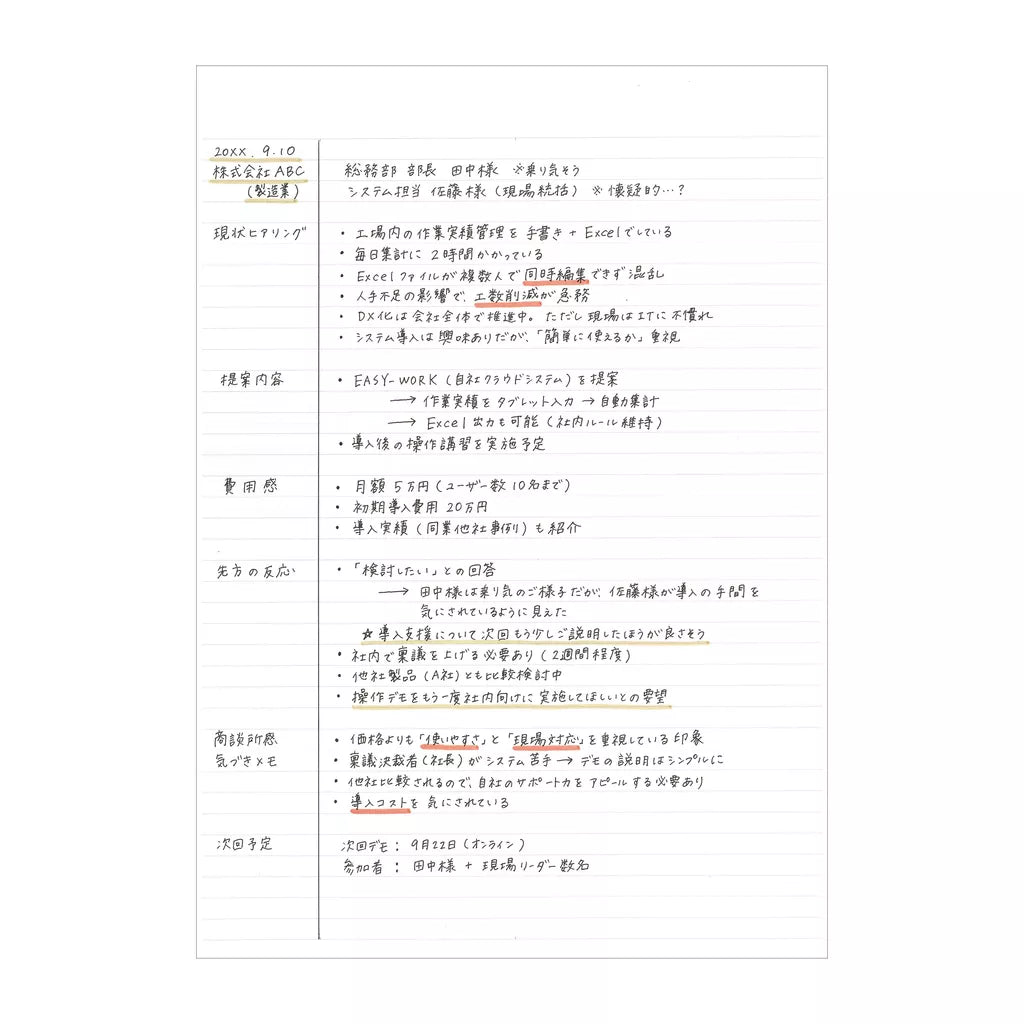 20XX.9.10
株式会社ABC
(製造業)
総務部 部長 田中様 ※乗り気そう
システム担当 佐藤様(現場統括) ※懐疑的…?
現状ヒアリング
・工場内の作業実績管理を手書き+Excelでしている
・毎日集計に2時間かかっている
・Excelファイルが複数人で同時編集できず混乱
・人手不足の影響で、工数削減が急務
・DX化は会社全体で推進中。ただし現場はITに不慣れ
・システム導入は興味ありだが、「簡単に使えるか」重視
提案内容
・EASY-WORK(自社クラウドシステム)を提案
→作業実績をタブレット入力→自動集計
→Excel出力も可能(社内ルール維持)
・導入後の操作講習を実施予定
費用感
・月額5万円(ユーザー数10名まで)
・初期導入費用20万円
・導入実績(同業他社事例)も紹介
先方の反応
・「検討したい」との回答
→田中様は乗り気のご様子だが、佐藤様が導入の手間を
気にされているように見えた
☆導入支援について次回もう少しご説明したほうが良さそう
・社内で稟議を上げる必要あり(2週間程度)
・他社製品(A社)とも比較検討中
・操作デモをもう一度社内向けに実施してほしいとの要望
商談所感
気づきメモ
・価格よりも「使いやすさ」と「現場対応」を重視している印象
・稟議決裁者(社長)がシステム苦手→デモの説明はシンプルに
・他社比較されるので、自社のサポート力をアピールする必要あり
・導入コストを気にされている
次回予定
次回デモ:9月22日(オンライン)
参加者:田中様+現場リーダー数名